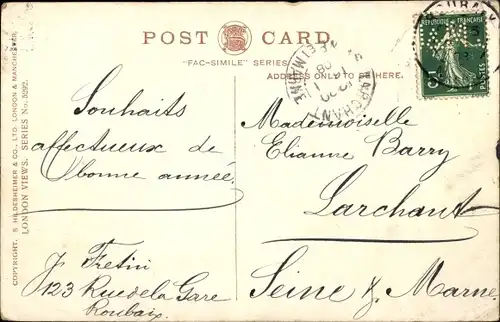 POST CARD.
"FAC-SIMILE" SERIES
ADDRESS ONLY TO BE HERE.
COPYRIGHT, S. HILDESHEIMER & CO., LTD. LONDON & MANCHESTER.
LONDON VIEWS. SERIES No. 5292.
Souhaits
affectueux de
bonne année.
J. Fretin
123 Rue de la Gare
Roubaix.
RÉPUBLIQUE FRANÇAISE
5
LARCHANT
Mademoiselle
Elianne Barry
Larchant
Seine & Marne